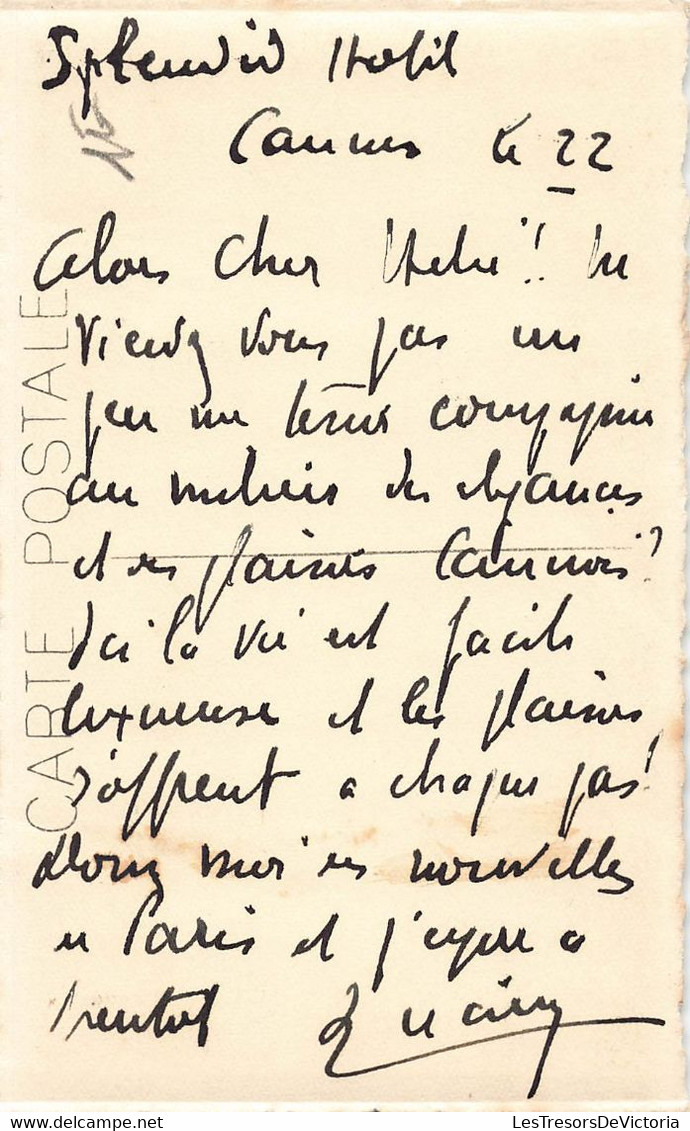 Splendid Hotel
Cannes le 22
Alors cher !! Ne
Viendrez vous pas un
peu me tenir compagnie
au milieu des élégances
et des plaisirs Cannois?
Ici la vie est facile
luxueuse et les plaisirs
s'offrent a chaque pas!
Donnez moi des nouvelles
de Paris et j'espere a
bientot Lucien
CARTE POSTALE
LesTresorsDeVictoria